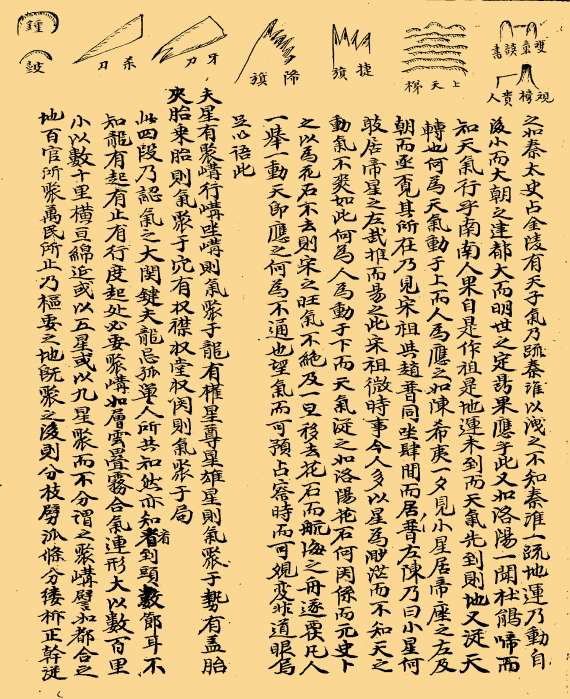 雙童讀書
視榜貴人
上天梯
捷旗
掃旗
牙刀
杀刀
鍾
鼓
之如秦太史占金陵有天子氣乃疏秦淮以洩之不知秦淮一疏地運乃動自
後小而大朝之建都大而明世之定鼎果應乎此又如洛陽一聞杜鵑啼而
知天氣行乎南南人果自是作祖是地運未到而天氣先到則地又從天
轉也何為天氣動于上而人為應之如陳希夷一夕見小星居帝座之左及
朝而亟覓其所在乃見宋祖與趙普同坐肆間而居普左陳乃曰小星何
敢居帝星之左哉推而易之此宋祖微時事今人多以星為渺茫而不知天之
動氣不爽如此何為人為動于下而天氣從之如洛陽花石何関係而元史卜
之以為花石不去則宋之旺氣不絶及一旦移去花石而航海之舟遂覆凡人
一舉一動天即應之何為不通也望氣而可預占審時而可覘变非道眼烏
足以語此
夫星有聚嶹行嶹坐嶹則氣聚于龍有權星尊星雄星則氣聚于勢有盖胎
夾胎乘胎則氣聚于穴有收襟收堂收関則氣聚于局
此四段乃認氣之大関鍵夫龍忌孤單人所共知然亦知看到頭數節耳不
知龍有起有止有行度起处必要聚嶹如層雲疊霧合氣連形大以數百里
小以數十里橫亘綿延或以五星或以九星聚而不分謂之聚嶹譬如都合之
地百官所聚萬民所止乃樞要之地旣聚之後則分枝劈派條分縷柝正幹從